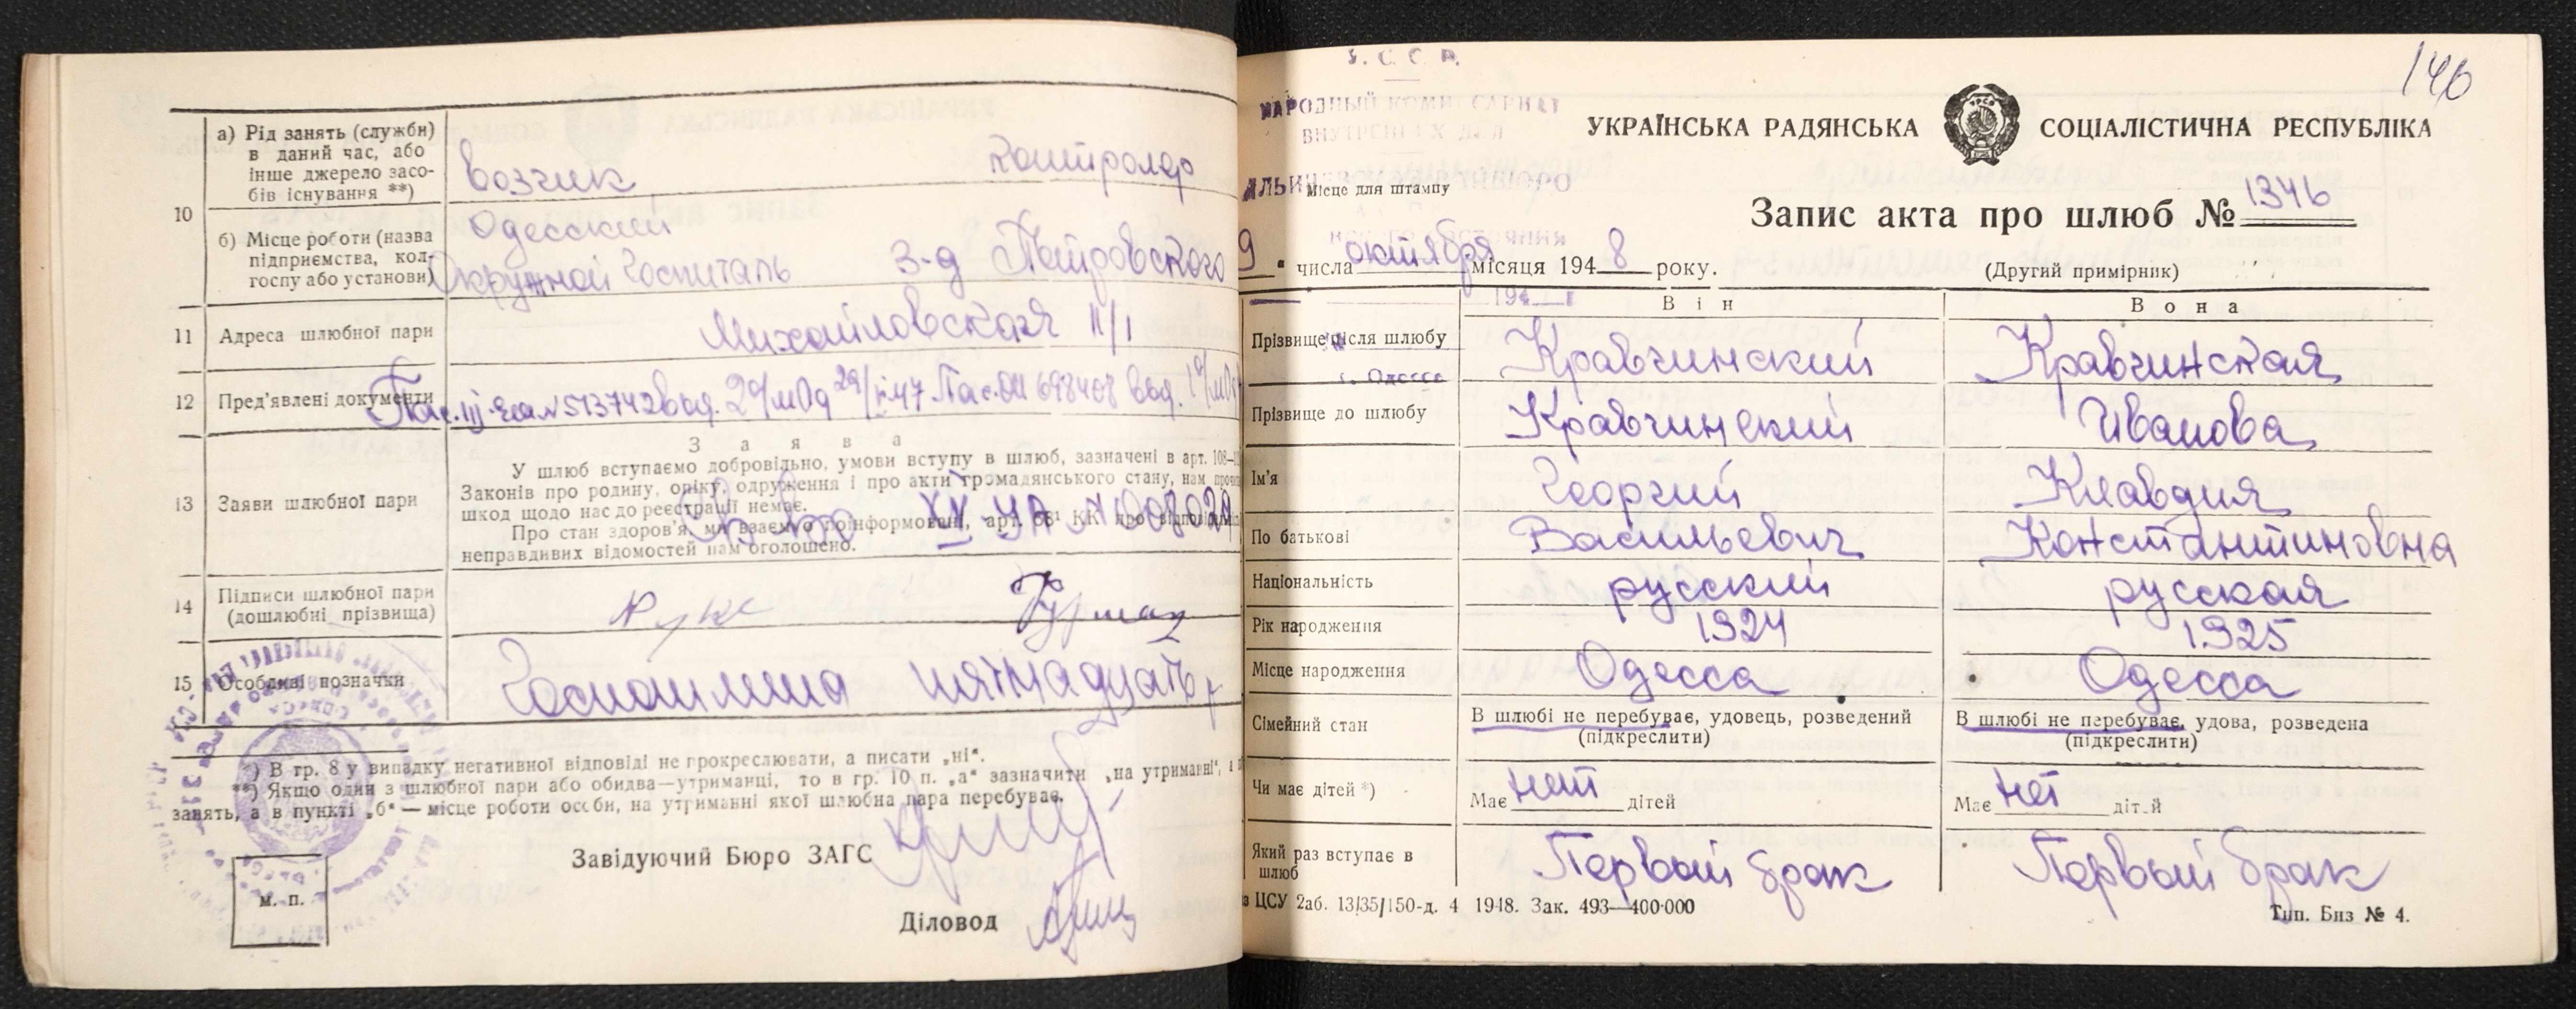 10
а) Рід занять (служби)
в даний час, або
інше джерело засо-
бів існування **)
Возчик
Контролер
б) Місце роботи (назва
підприємства, кол-
госпу або установи)
Одесский
Окружной Госпиталь
З-д Петровского
11
Адреса шлюбної пари
Михайловская 11/1
12
Пред'явлені документи
13
Заяви шлюбної пари
Заява
У шлюб вступаємо добровільно, умови вступу в шлюб, зазначені в арт. 108—
Законів про родину, опіку, одруження і про акти громадянського стану, нам
шкод щодо нас до реєстрації немає.
Про стан здоров'я ми взаємно поінформовані, арт. КК про
неправдивих відомостей нам оголошено.
14
Підписи шлюбної пари
(дошлюбні прізвища)
15
Особливі позначки
Госпошлина пятнадцать р
*) В гр. 8 у випадку негативної відповіді не прокреслювати, а писати „ні“.
**) Якщо один з шлюбної пари або обидва—утриманці, то в гр. 10 п. „а“ зазначити „на утриманні“, а
занять, а в пункті „б“ — місце роботи особи, на утриманні якої шлюбна пара перебуває.
Завідуючий Бюро ЗАГС
Діловод
м. п.
У. С. С. Р.
НАРОДНЫЙ КОМИССАРИАТ
ВНУТРЕННИХ ДЕЛ
Місце для штампу
г. Одесса
146
УКРАЇНСЬКА РАДЯНСЬКА СОЦІАЛІСТИЧНА РЕСПУБЛІКА
Запис акта про шлюб № 1346
9 “ числа октября місяця 1948 року.
(Другий примірник)
Він
Вона
Прізвище після шлюбу
Кравчинский
Кравчинская
Прізвище до шлюбу
Кравчинский
Иванова
Ім'я
Георгий
Клавдия
По батькові
Васильевич
Константиновна
Національність
русский
русская
Рік народження
1924
1925
Місце народження
Одесса
Одесса
Сімейний стан
В шлюбі не перебуває, удовець, розведений
(підкреслити)
В шлюбі не перебуває, удова, розведена
(підкреслити)
Чи має дітей *)
Має нет дітей
Має нет дітей
Який раз вступає в
шлюб
Первый брак
Первый брак
ЦСУ 2аб. 13/35/150-д. 4 1948. Зак. 493—400·000
Тип. Биз № 4.